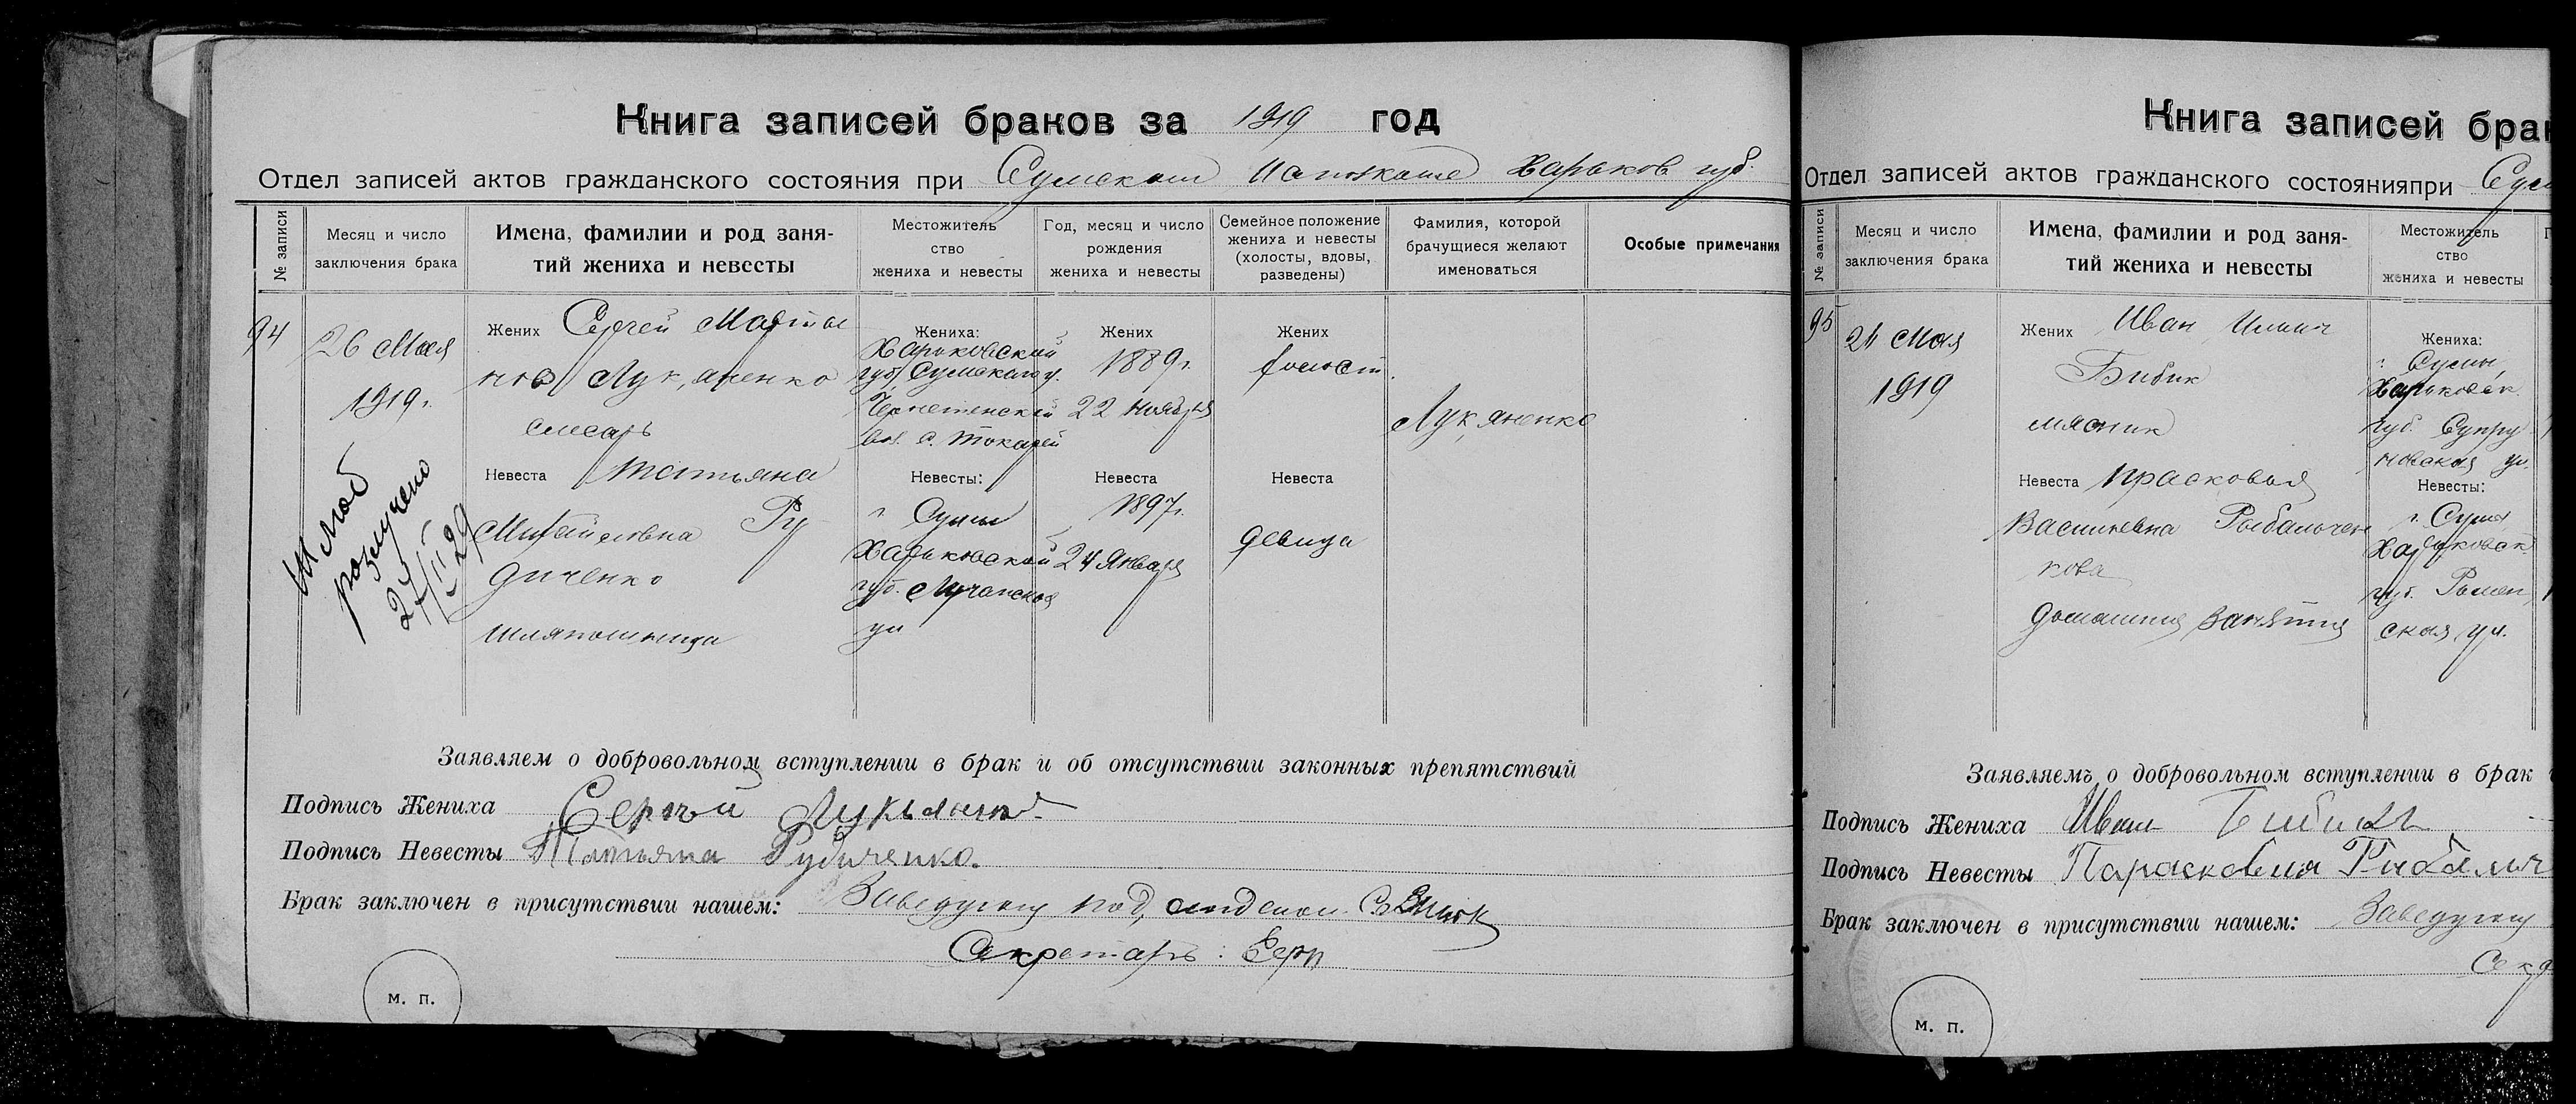 Книга записей браков за 1919 год
Отдел записей актов гражданского состояния при Сумском Исполкоме Харьков губ.
№ записи
Месяц и число
заключения брака
Имена, фамилии и род заня-
тий жениха и невесты
Местожитель
ство
жениха и невесты
Год, месяц и число
рождения
жениха и невесты
Семейное положение
жениха и невесты
(холосты, вдовы,
разведены)
Фамилия, которой
брачущиеся желают
именоваться
Особые примечания
94
26 Мая
1919г.
Жених Сергей Марты
нов Лук,яненко
слесарь
Невеста Татьяна
Михайловна Ру
диченко
шляпошница
Жениха:
Харьковский
губ, Сумского у.
вол. с. Токарей
Невесты:
г Сумы
Харьковской
губ.
ул
Жених
1889г.
22 Ноября
Невеста
1897г.
24 Января
Жених
холост.
Невеста
девица
Лук,яненко
Шлюб
розлучено
Заявляем о добровольном вступлении в брак и об отсутствии законных препятствий
Подпись Жениха Сергей
Подпись Невесты Татьяна Рудиченко.
Брак заключен в присутствии нашем: Заведующ под,отделом
Секретарь:
м. п.
Книга записей брак
Отдел записей актов гражданского состоянияпри Сум
№ записи
Месяц и число
заключения брака
Имена, фамилии и род заня-
тий жениха и невесты
Местожитель
ство
жениха и невесты
95
Мая
1919
Жених Иван Ильич
Бибик
мясник
Невеста Прасковья
Васильевна Рыбальчен
кова
домашния занятия
Жениха:
г. Сумы,
Харьковск.
губ. Супру
новская ул.
Невесты:
г. Сумы
Харьковск.
губ. Ромен
ская ул.
Заявляемъ о добровольном вступлении в брак
Подпись Жениха Иван Бибикъ
Подпись Невесты Парасковия Рибальч
Брак заключен в присутствии нашем: Заведующ
Секр
м. п.